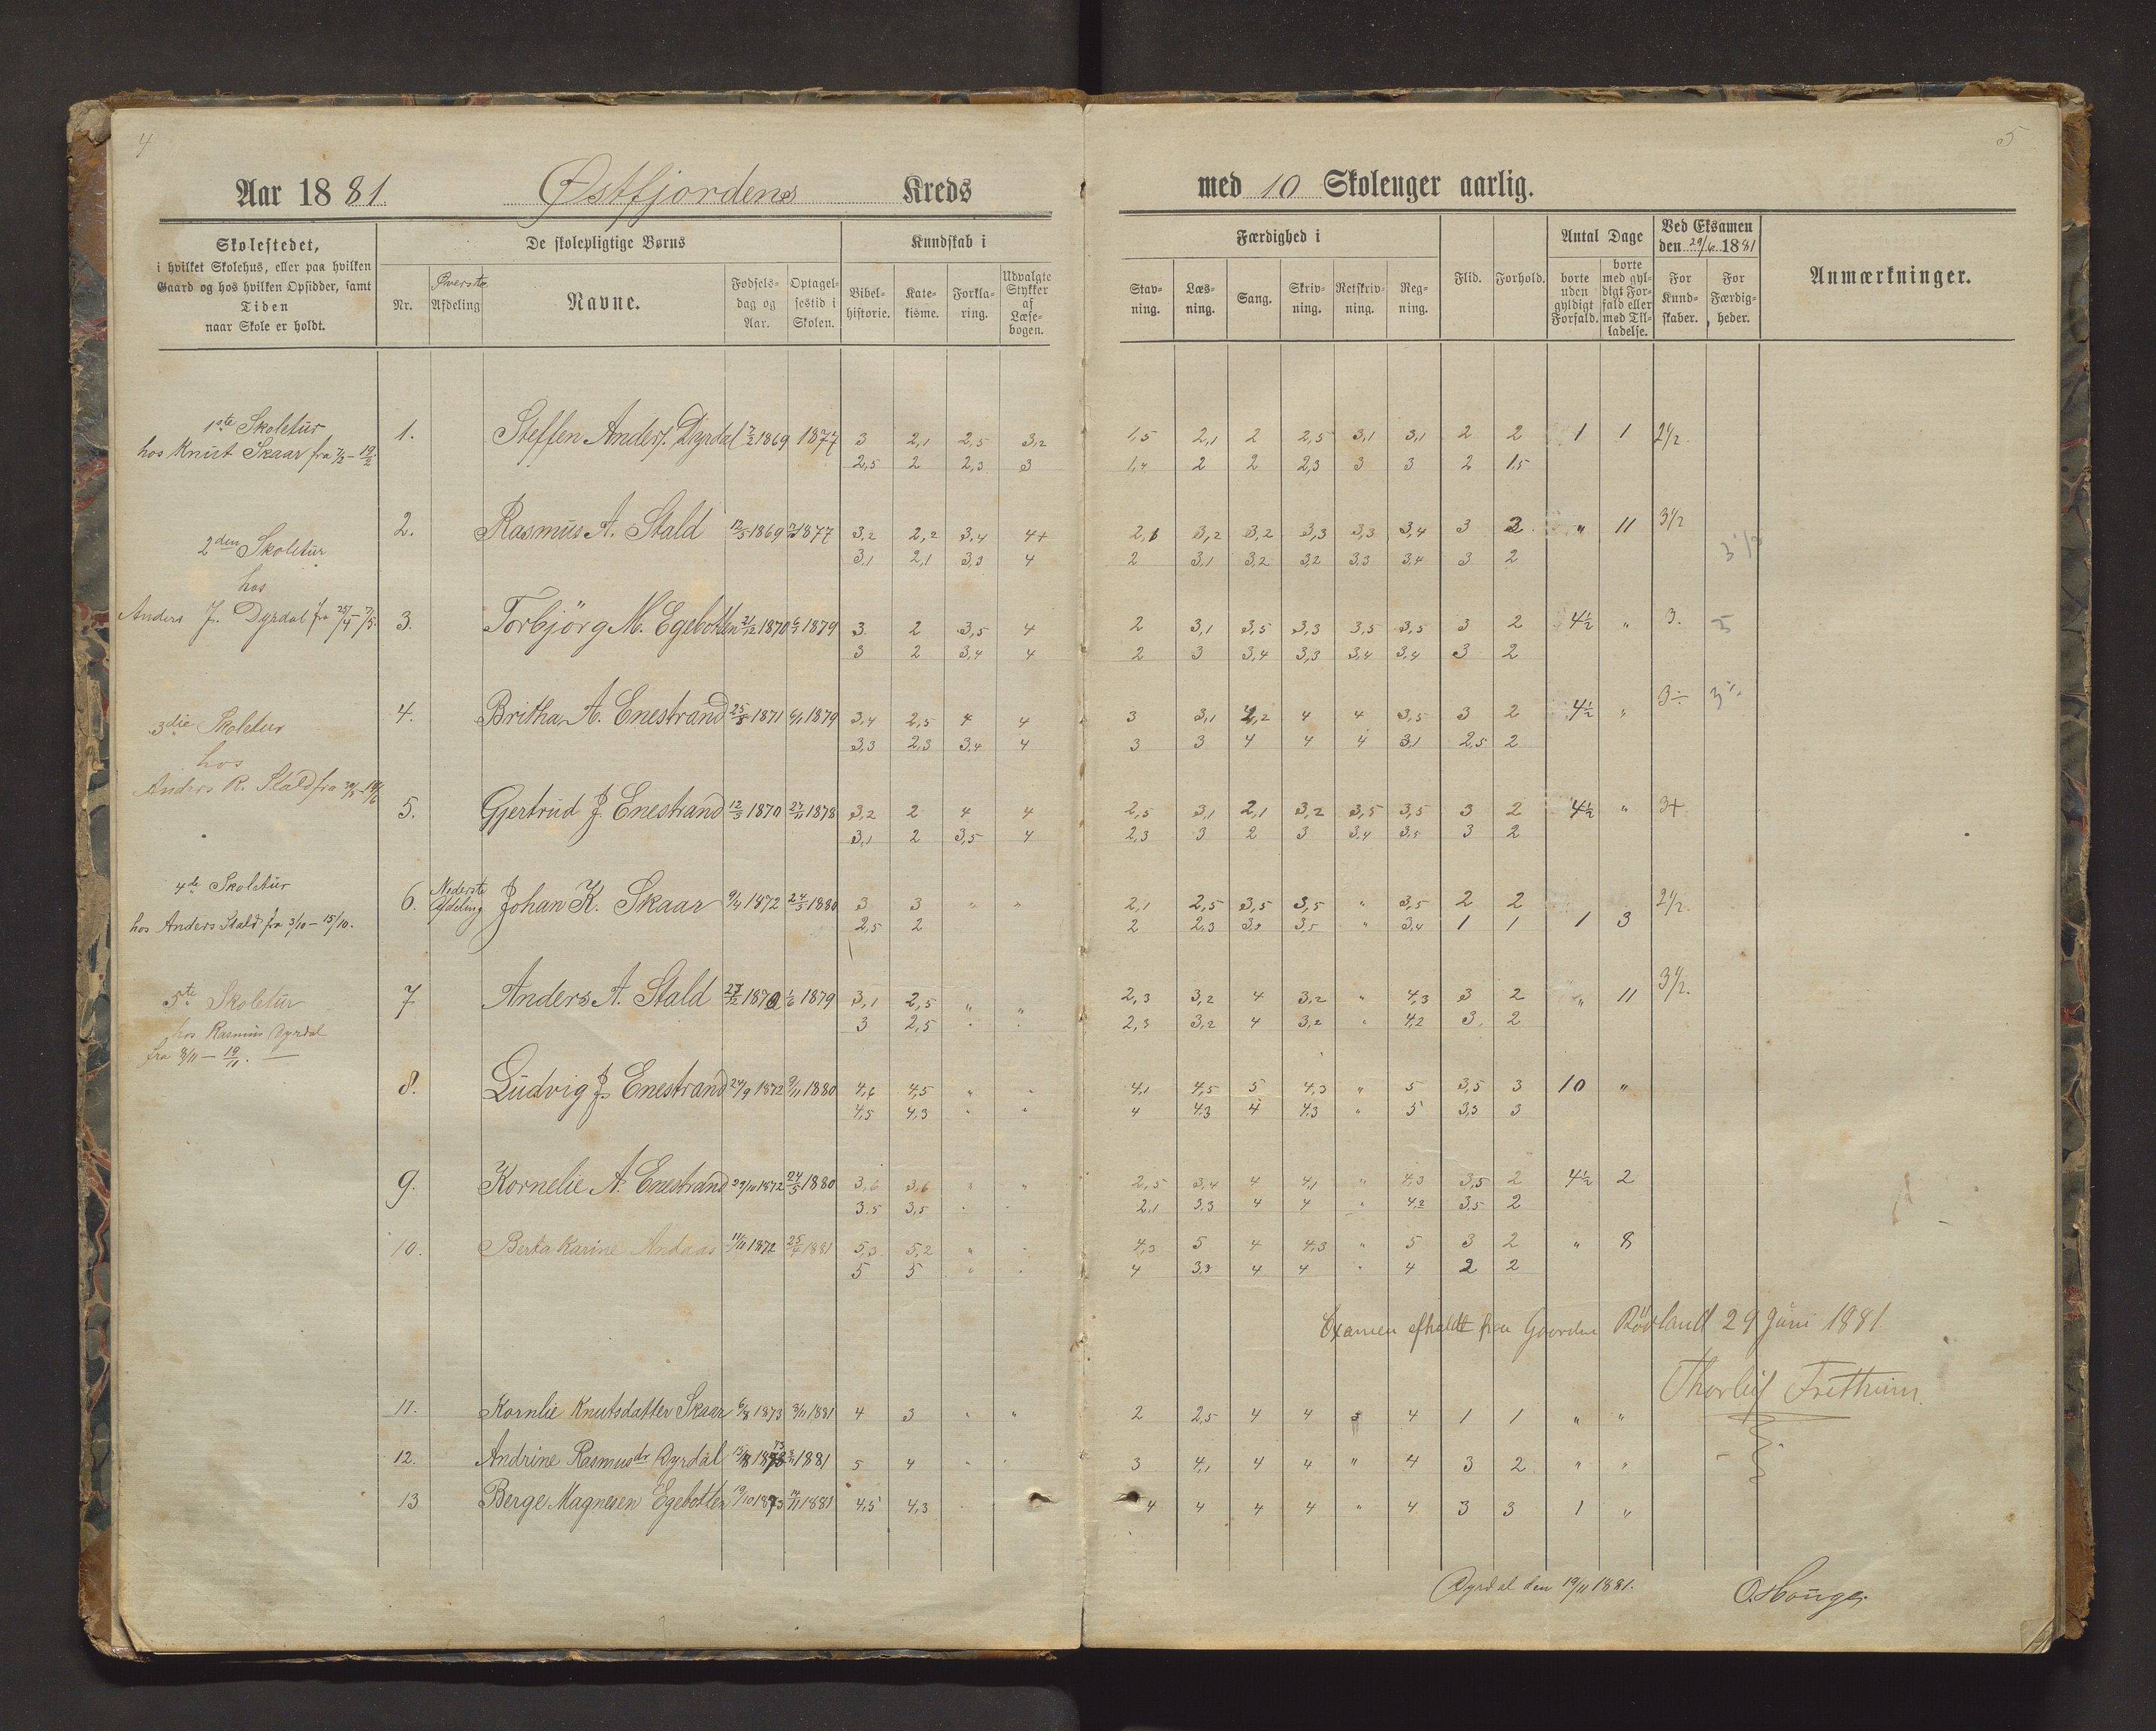 4
Aar 1881. Østfjordens Kreds
Skolestedet, i hvilket Skolehus, eller paa hvilken Gaard og hos hvilken Opsidder, samt Tiden naar Skole er holdt.
De skolepligtige Børns
Nr. Øverste Afdeling Navne. Fødselsdag og Aar. Optagelsestid i Skolen.
Kundskab i
Bibelhistorie. Katekisme. Forklaring. Udvalgte Stykker af Læsebogen.
1ste Skoletur
hos Knut Skaar fra 7/2 - 19/2
2den Skoletur
hos
Anders J. Dyrdal fra 25/4 - 7/5.
3die Skoletur
hos
Anders R. Stald fra
4de Skoletur
hos Anders Stald fra 3/10 - 15/10.
5te Skoletur
hos Rasmus Dyrdal
fra 8/11 - 19/11.
1. Steffen Anders. Dyrdal 7/2 1869 1877 3 2,1 2,5 3,2
2,5 2 2,3 3
2. Rasmus A. Stald 12/5 1869 1877 3,2 2,2 3,4 4+
3,1 2,1 3,3 4
3. Torbjörg M. Egebotten 21/12 1870 1879 3 2 3,5 4
3 2 3,4 4
4. Britha A. Enestrand 25/8 1871 1879 3,4 2,5 4 4
3,3 2,3 3,4 4
5. Gjertrud J. Enestrand 12/3 1870 27/11 1878 3,2 2 4 4
3,1 2 3,5 4
6. Nederste Afdeling Johan K. Skaar 9/4 1872 24/5 1880 3 3 " "
2,5 2
7 Anders A. Stald 27/12 1870 1/6 1879 3,1 2,5 " "
3 2,5 " "
8. Ludvig J. Enestrand 24/9 1872 9/11 1880 4,6 4,5 " "
4,5 4,3 " "
9. Kornelie A. Enestrand 29/10 1872 24/5 1880 3,6 3,6 " "
3,5 3,5 " "
10. Berta Karine Andaas 11/11 1872 25/4 1881 5,3 5,2 " "
5 5 " "
11. Kornlie Knutsdatter Skaar 6/8 1873 8/11 1881 4 3 " "
12. Andrine Rasmusdr Dyrdal 13/8 1873 1881 5 4 " "
13 Berge Magnesen Egebotten 19/10 1873 1881 4,5 4,3
5
med 10 Skoleuger aarlig.
Færdighed i
Stavning. Læsning. Sang. Skrivning. Retskrivning. Regning.
Flid. Forhold.
Antal Dage
borte uden gyldigt Forfald. borte med gyldigt Forfald eller med Tilladelse.
Ved Eksamen den 29/6 1881
For Kundskaber. For Færdigheder.
Anmærkninger.
1,5 2,1 2 2,5 3,1 3,1 2 2 1 1 2 1/2
1,4 2 2 2,3 3 3 2 1,5
2,1 3,2 3,2 3,3 3,3 3,4 3 2 " 11 3 1/2 3 1/2
2 3,1 3,2 3,2 3,3 3,4 3 2
2 3,1 3,5 3,3 3,5 3,5 3 2 4 1/2 " 3.
2 3 3,4 3,3 3,4 3,4 3 2
3 3,1 4,2 4 4 3,5 3 2 4 1/2 " 3÷
3 3 4 4 4 3,1 2,5 2
2,5 3,1 2,1 3,2 3,5 3,5 3 2 4 1/2 " 3+
2,3 3 2 3 3,4 3,5 3 2
2,1 2,5 3,5 3,5 " 3,5 2 2 2 1/2.
2 2,3 3,3 3,5 " 3,4 1 1 1 3
2,3 3,2 4 3,2 " 4,3 3 2 " 11 3 1/2.
2,3 3,2 4 3,2 " 4,2 3 2
4,1 4,5 5 4,3 " 5 3,5 3 10 "
4 4,3 4 4,3 " 5 3,3 3
2,5 3,4 4 4,1 " 4,3 3,5 2 4 1/2 2
2,1 3,3 4 4 " 4,2 3,5 2
4,3 5 4 4,3 " 5 3 2 " 8
4 3,3 4 4 " 4 2 2
Examen afholdt paa Gaarden Rörland 29 Juni 1881.
Thorleif Fretheim
2 2,5 4 4 4 1 1 " "
3 4,1 4 4 " 4 3 2 " "
4 4 4 4 " 4 3 3 1 "
Dyrdal den 19/11 1881.
O. Hauge.